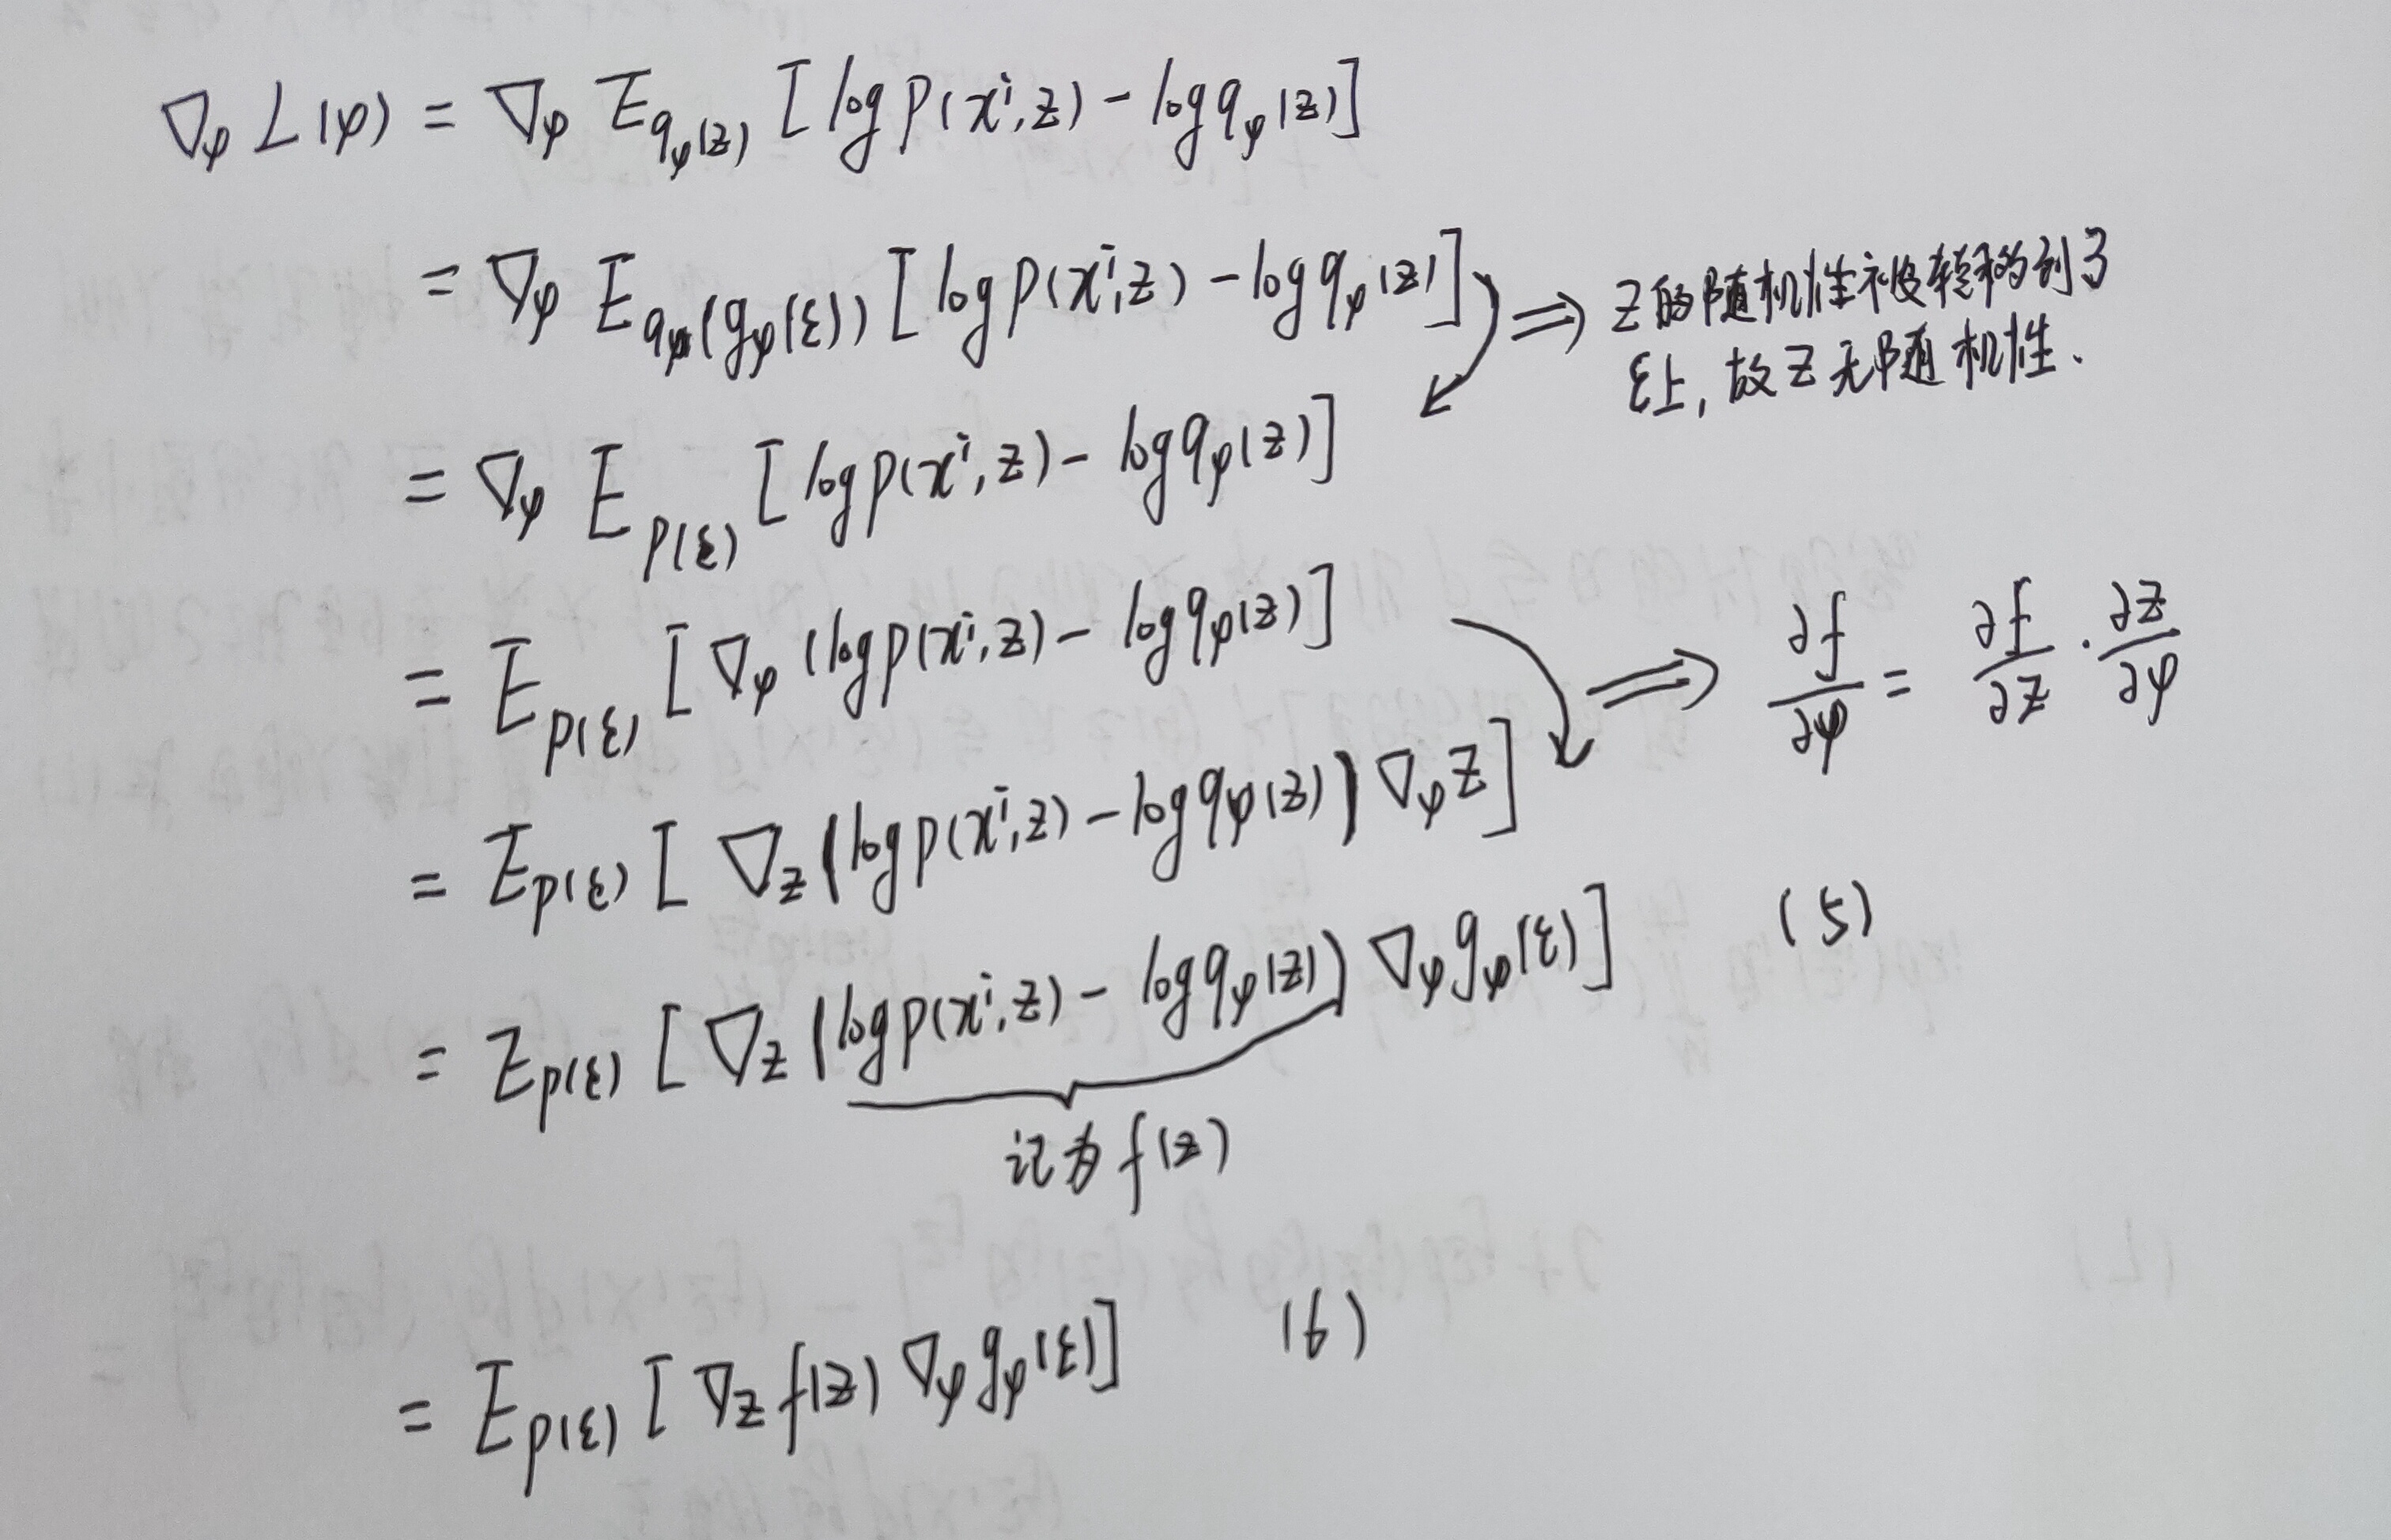 ∇φ L(φ) = ∇φ E_{qφ(z)} [log p(xⁱ,z) − log qφ(z)]
= ∇φ E_{qφ(gφ(ε))} [log p(xⁱ,z) − log qφ(z)] ⇒ z的随机性被转移到了
ε上, 故z无随机性.
= ∇φ E_{p(ε)} [log p(xⁱ,z) − log qφ(z)]
= E_{p(ε)} [∇φ (log p(xⁱ,z) − log qφ(z)] ⇒ ∂f/∂φ = ∂f/∂z · ∂z/∂φ
= E_{p(ε)} [∇z (log p(xⁱ,z) − log qφ(z)) ∇φ z]
= E_{p(ε)} [∇z (log p(xⁱ,z) − log qφ(z)) ∇φ gφ(ε)] (5)
记为 f(z)
= E_{p(ε)} [∇z f(z) ∇φ gφ(ε)] (6)